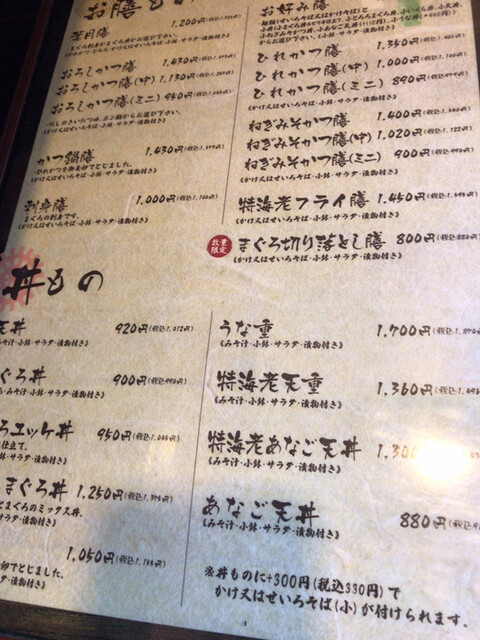 お膳もの
葉月膳 1,200円
まぐろ刺身かまぐろ丼が選べます。
おろしかつ膳 1,430円
おろしかつ膳(中) 1,130円
おろしかつ膳(ミニ) 950円
《かけ又はせいろそば・小鉢・サラダ・漬物付き》
かつ鍋膳 1,430円
ひれかつを御玉子でとじました。
《かけ又はせいろそば・小鉢・サラダ・漬物付き》
刺身膳 1,000円(税込1,100円)
まぐろの刺身です。
《かけ又はせいろそば・小鉢・サラダ・漬物付き》
お好み膳
からお選び下さい。
ひれかつ膳 1,350円
ひれかつ膳(中) 1,000円
ひれかつ膳(ミニ) 890円
《かけ又はせいろそば・小鉢・サラダ・漬物付き》
ねぎみそかつ膳 1,400円
ねぎみそかつ膳(中) 1,020円(税込1,122円)
ねぎみそかつ膳(ミニ) 900円(税込990円)
《かけ又はせいろそば・小鉢・サラダ・漬物付き》
特海老フライ膳 1,450円
《かけ又はせいろそば・小鉢・サラダ・漬物付き》
数量限定 まぐろ切り落とし膳 800円(税込880円)
《かけ又はせいろそば・小鉢・サラダ・漬物付き》
丼もの
天丼 920円(税込1,012円)
《みそ汁・小鉢・サラダ・漬物付き》
ぐろ丼 900円(税込990円)
《みそ汁・小鉢・サラダ・漬物付き》
ろユッケ丼 950円(税込1,045円)
仕立て。
小鉢・サラダ・漬物付き》
まぐろ丼 1,250円(税込1,375円)
とまぐろのミックス丼。
小鉢・サラダ・漬物付き》
1,050円(税込1,155円)
卵でとじました。
サラダ・漬物付き》
うな重 1,700円(税込1,870
《みそ汁・小鉢・サラダ・漬物付き》
特海老天重 1,360円(税込1,496
《みそ汁・小鉢・サラダ・漬物付き》
特海老あなご天丼 1,30
《みそ汁・小鉢・サラダ・漬物付き》
あなご天丼 880円(税込9
《みそ汁・小鉢・サラダ・漬物付き》
※丼ものに+300円(税込330円)で
かけ又はせいろそば(小)が付けられます。